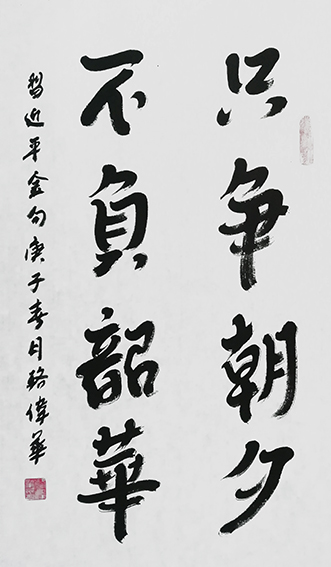 只争朝夕
不負韶華
習近平金句庚子春月駱偉華